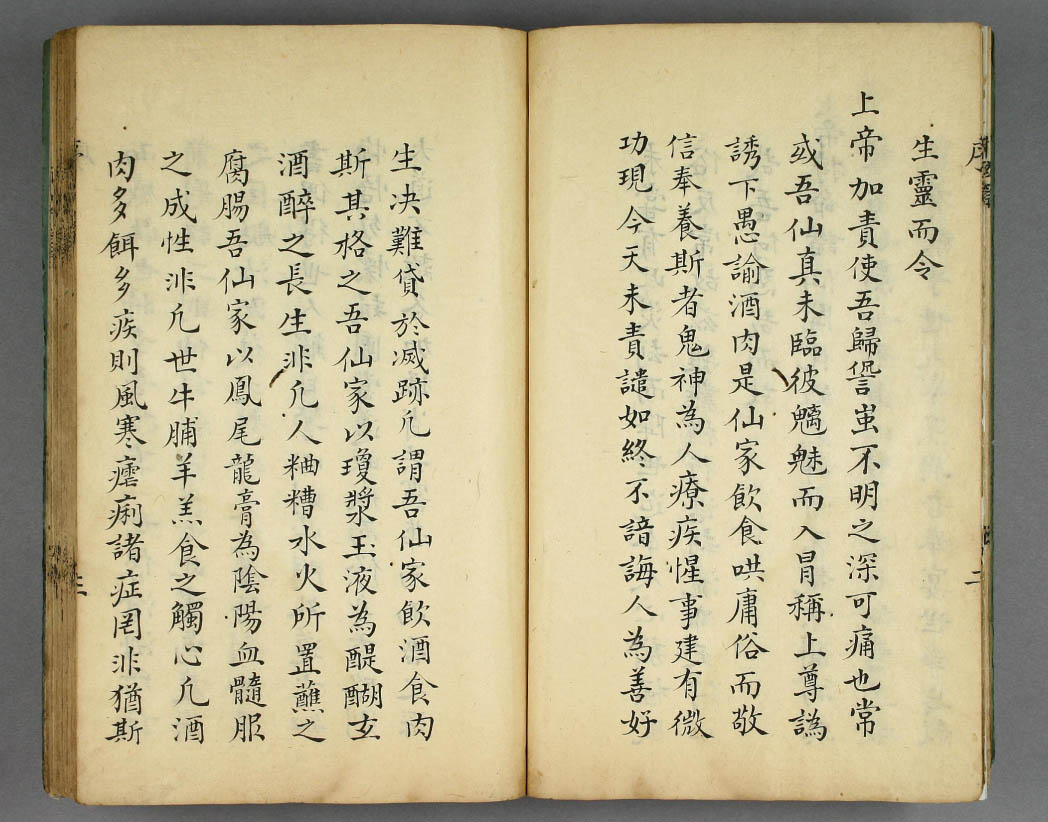 生靈而令
上帝加責使吾歸譽蚩不明之深可痛也常
或吾仙真未臨彼魑魅而入冐稱上尊譌
誘下愚諭酒肉是仙家飲食哄庸俗而敬
信奉養斯者鬼神為人療疾惺事建有微
功現今天未責譴如終不諳誨人為善好
生决難貸於滅跡凢謂吾仙家飲酒食肉
斯其格之吾仙家以瓊漿玉液為醍醐玄
酒醉之長生非凢人粬糟水火所置蘸之
腐腸吾仙家以鳳尾龍膏為陰陽血髓服
之成性非凢世牛脯羊羔食之觸心凢酒
肉多餌多疾則風寒瘧痢諸症罔非猶斯
序
二
三